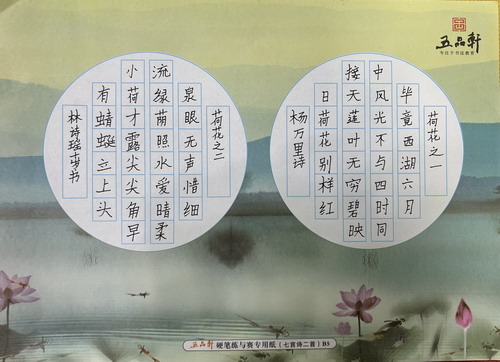 五品軒
专注于书法教育
荷花之一
毕竟西湖六月
中风光不与四时同
接天莲叶无穷碧映
日荷花别样红
杨万里诗
荷花之二
泉眼无声惜细
流绿荫照水爱晴柔
小荷才露尖尖角早
有蜻蜓立上头
林诗瑶书
五品軒 硬笔练与赛专用纸（七言诗二首）B5